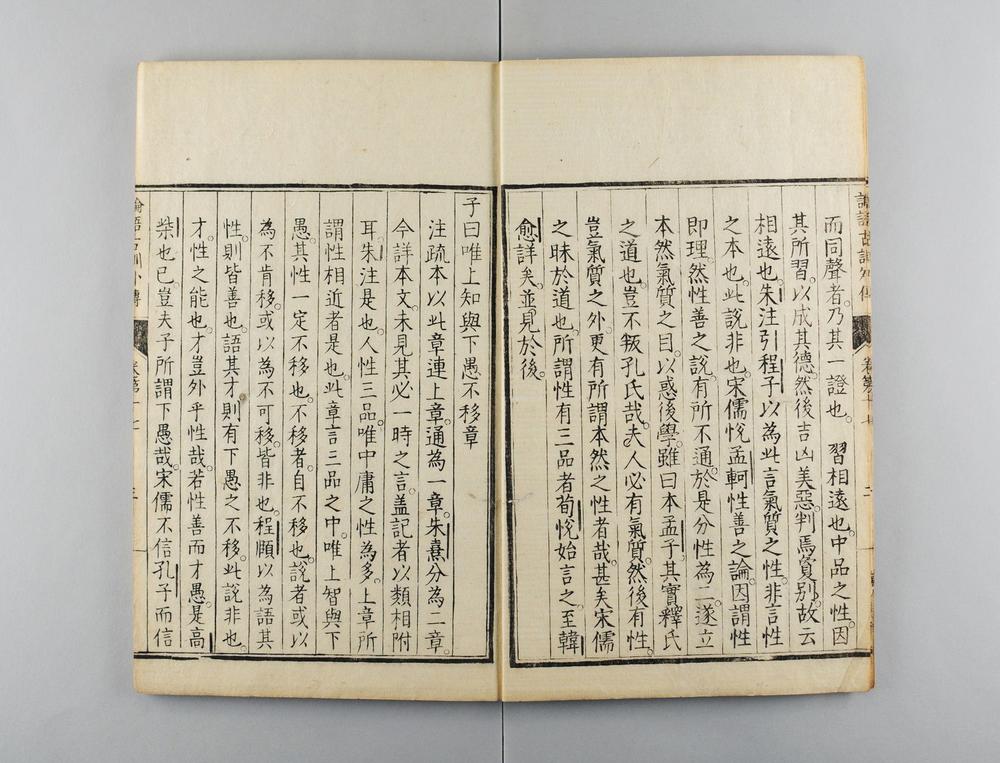 而同聲者。乃其一證也。　習相遠也。中品之性。因
其所習。以成其德。然後吉凶美惡。判焉夐別。故云
相遠也。朱注引程子以為此言氣質之性。非言性
之本也。此說非也。宋儒悅孟軻性善之論。因謂性
即理。然性善之說。有所不通。於是分性為二。遂立
本然氣質之目。以惑後學。雖曰本孟子。其實釋氏
之道也。豈不叛孔氏哉。夫人必有氣質。然後有性。
豈氣質之外。更有所謂本然之性者哉。甚矣宋儒
之昧於道也。所謂性有三品者。荀悅始言之。至韓
愈詳矣。並見於後。
子曰唯上知與下愚不移章
注疏本以此章連上章。通為一章。朱熹分為二章。
今詳本文。未見其必一時之言。蓋記者以類相附
耳。朱注是也。人性三品。唯中庸之性為多。上章所
謂性相近者是也。此章言三品之中。唯上智與下
愚。其性一定不移也。不移者。自不移也。說者或以
為不肯移。或以為不可移。皆非也。程頤以為語其
性。則皆善也。語其才。則有下愚之不移。此說非也。
才。性之能也。才豈外乎性哉。若性善而才愚。是高
柴也已。豈夫子所謂下愚哉。宋儒不信孔子。而信